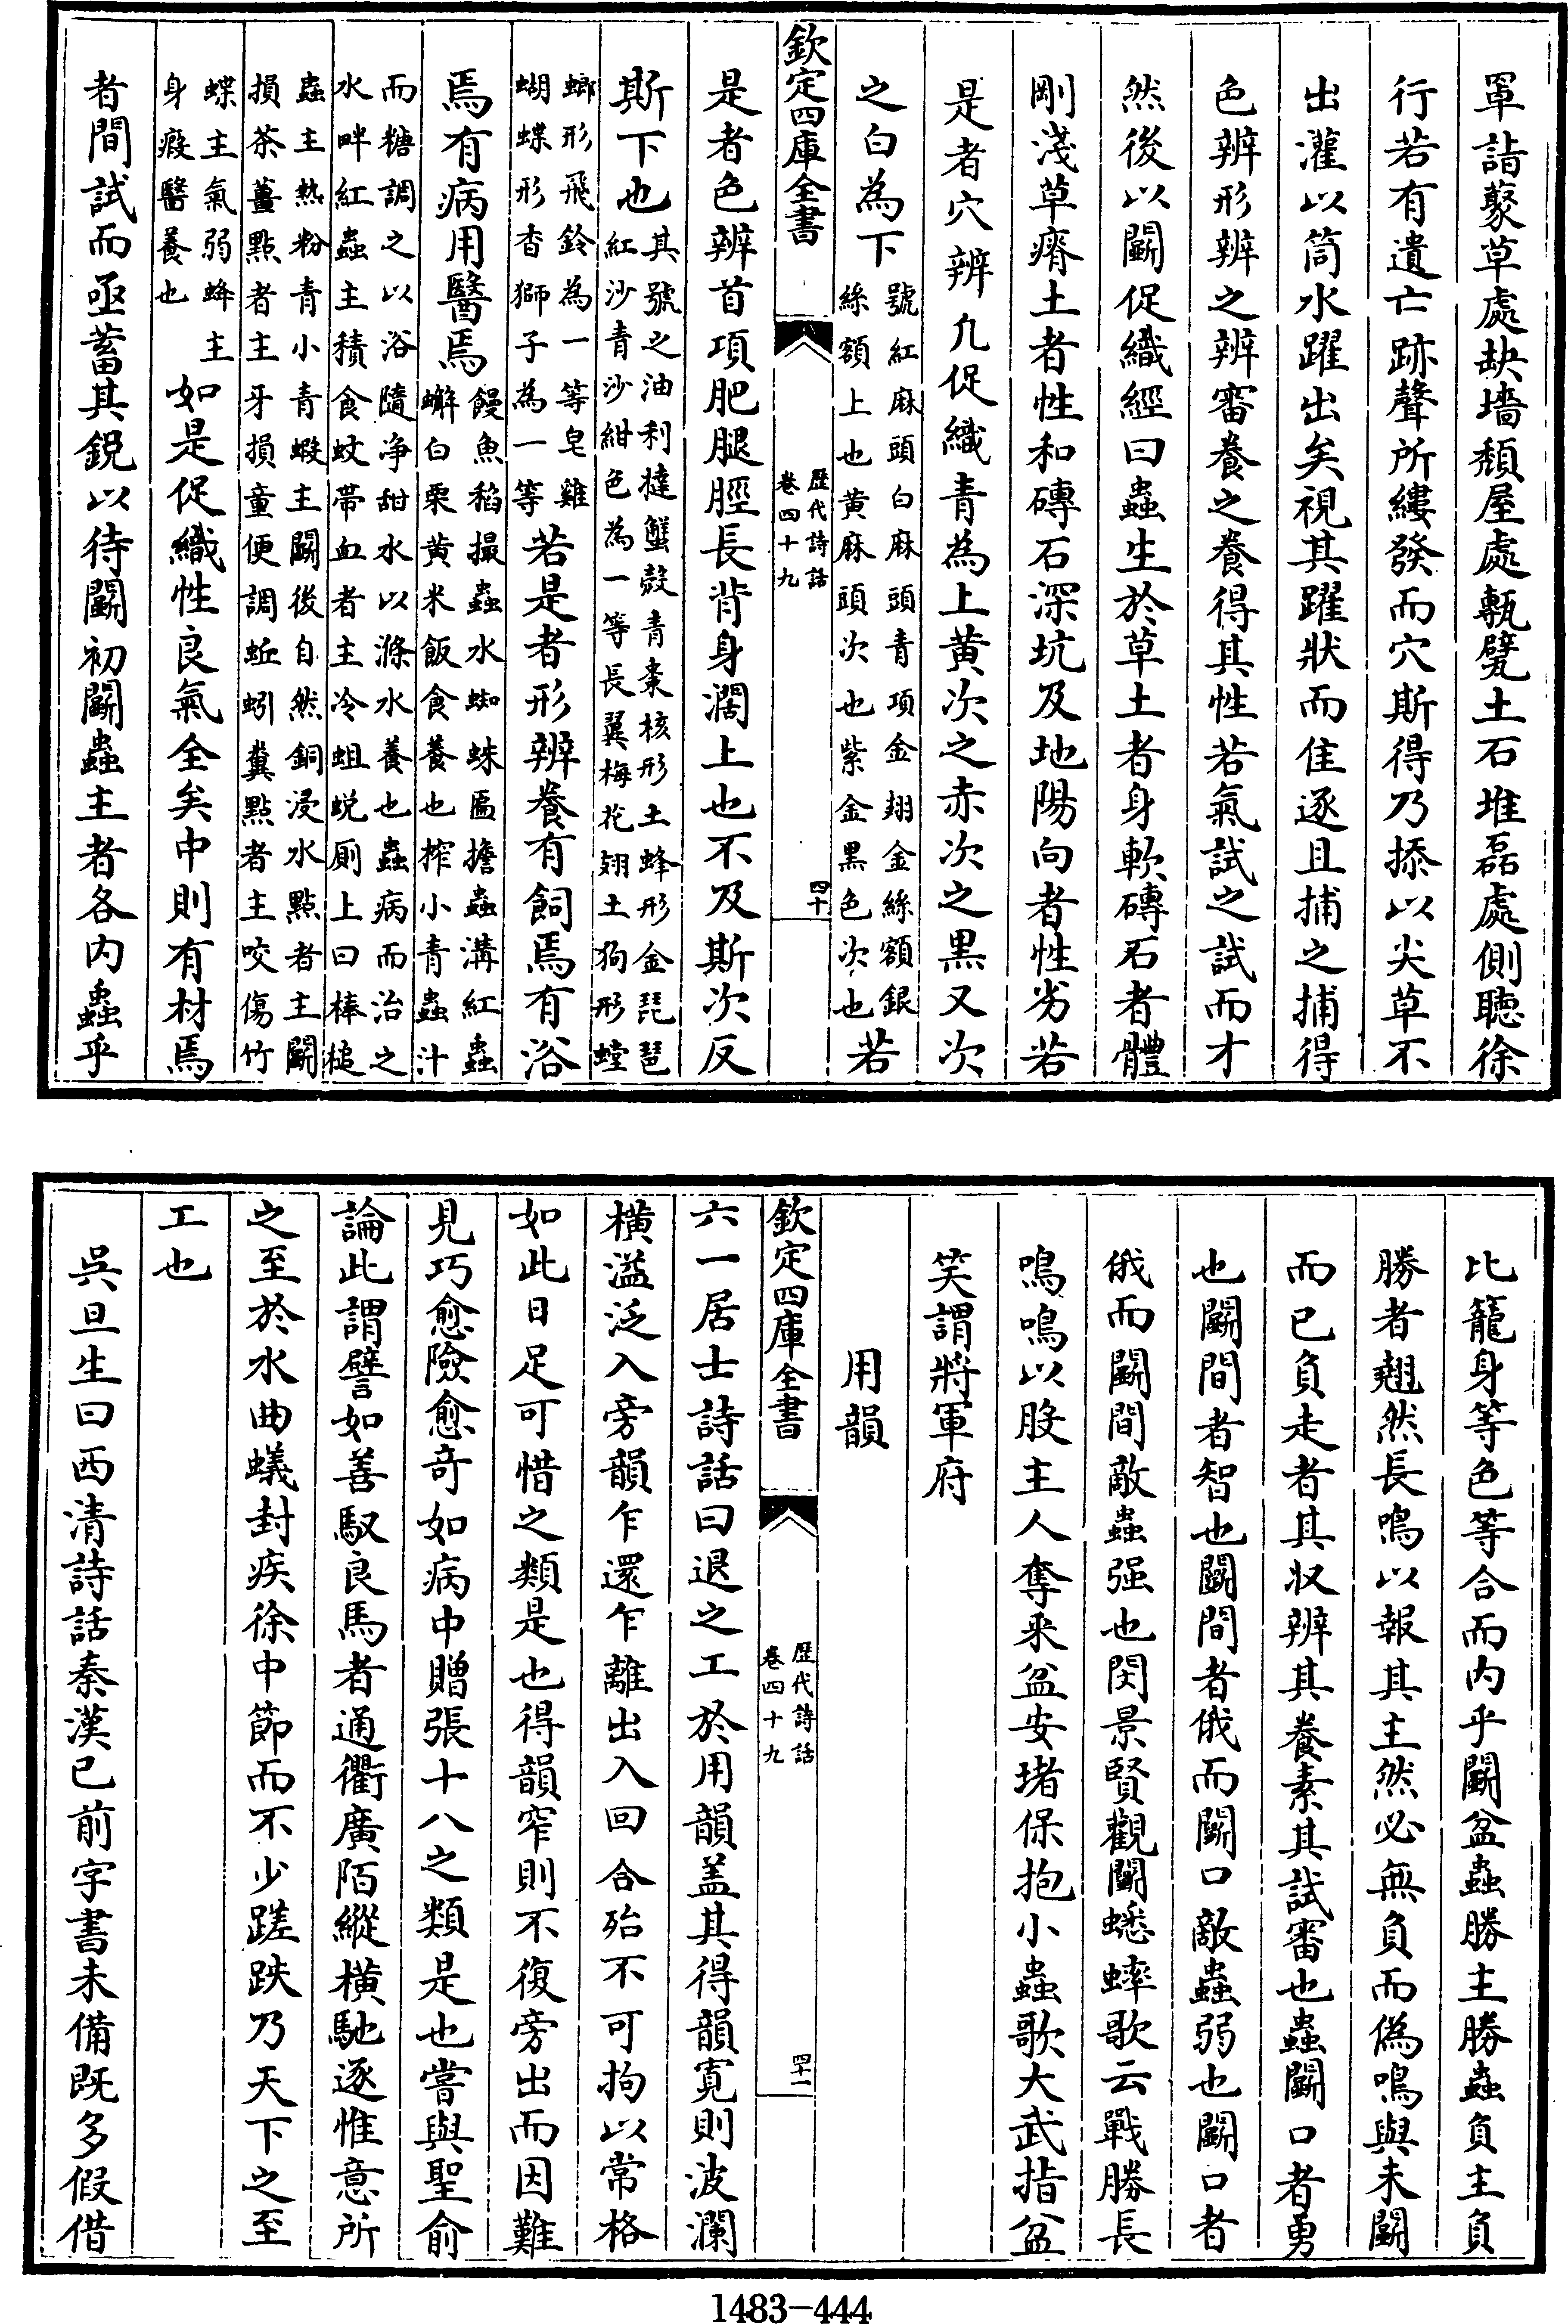 罩詣藂草處缺墻頽屋處甎甓土石堆磊處側聽徐
行若有遺亡跡聲所縷發而穴斯得乃捺以尖草不
出灌以筒水躍出矣視其躍狀而隹逐且捕之捕得
色辨形辨之辨審養之養得其性若氣試之試而才
然後以鬭促織經曰蟲生於草土者身軟磚石者體
剛淺草瘠土者性和磚石深坑及地陽向者性劣若
是者穴辨凡促織青為上黃次之赤次之黑又次
之白為下
號紅麻頭白麻頭青項金翅金絲額銀
絲額上也黃麻頭次也紫金黑色次也
若
欽定四庫全書
歷代詩話
卷四十九
四十
是者色辨首項肥腿脛長背身濶上也不及斯次反
斯下也
其號之油利撻蟹殼青棗核形土蜂形金琵琶
紅沙青沙紺色為一等長翼梅花翅土狗形螳
螂形飛鈴為一等皂雞
蝴蝶形香獅子為一等
若是者形辨養有飼焉有浴
焉有病用醫焉
饅魚稻撮蟲水蜘蛛匾擔蟲溝紅蟲
蠏白栗黃米飯食養也榨小青蟲汁
而糖調之以浴隨净甜水以滌水養也蟲病而治之
水畔紅蟲主積食蚊帶血者主冷蛆蜕厠上曰棒槌
蟲主熱粉青小青蝦主鬭後自然銅浸水點者主鬭
損茶薑點者主牙損童便調蚯蚓糞點者主咬傷竹
蝶主氣弱蜂主
身瘢醫養也
如是促織性良氣全矣中則有材焉
者間試而亟蓄其銳以待鬭初鬭蟲主者各内蟲乎
比籠身等色等合而内乎鬭盆蟲勝主勝蟲負主負
勝者翹然長鳴以報其主然必無負而偽鳴與未鬭
而已負走者其収辨其養素其試審也蟲鬭口者勇
也鬭間者智也鬭間者俄而鬭口敵蟲弱也鬭口者
俄而鬭間敵蟲强也閔景賢觀鬭蟋蟀歌云戰勝長
鳴鳴以股主人奪采盆安堵保抱小蟲歌大武指盆
笑謂將軍府
用韻
欽定四庫全書
歷代詩話
卷四十九
四十一
六一居士詩話曰退之工於用韻盖其得韻寛則波瀾
橫溢泛入旁韻乍還乍離出入回合殆不可拘以常格
如此日足可惜之類是也得韻窄則不復旁出而因難
見巧愈險愈奇如病中贈張十八之類是也嘗與聖俞
論此謂譬如善馭良馬者通衢廣陌縱橫馳逐惟意所
之至於水曲蟻封疾徐中節而不少蹉跌乃天下之至
工也
吳旦生曰西清詩話秦漢已前字書未備既多假借
1483-444